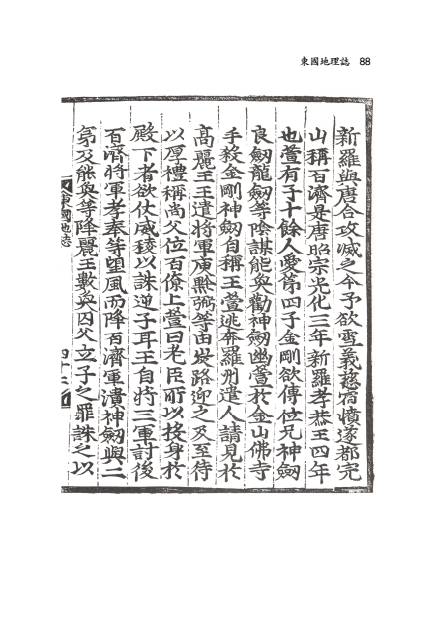 東國地理誌 88
新羅與唐合攻滅之今予欲雪義慈宿憤遂都完
山稱百濟是唐昭宗光化三年新羅孝恭王四年
也萱有子十餘人愛第四子金剛欲傳位兄神劒
良劒龍劒等陰謀能奐勸神劒幽萱於金山佛寺
手殺金剛神劒自稱王萱逃奔羅州遣人請見於
高麗王王遣將軍庾黔弼等由海路迎之及至待
以厚禮稱尚父位百僚上萱曰老臣所以投身於
殿下者欲仗威稜以誅逆子耳王自將三軍討後
百濟將軍孝奉等望風而降百濟軍潰神劒與二
弟及能奐等降麗王數奐囚父立子之罪誅之以
東國地志
四十二